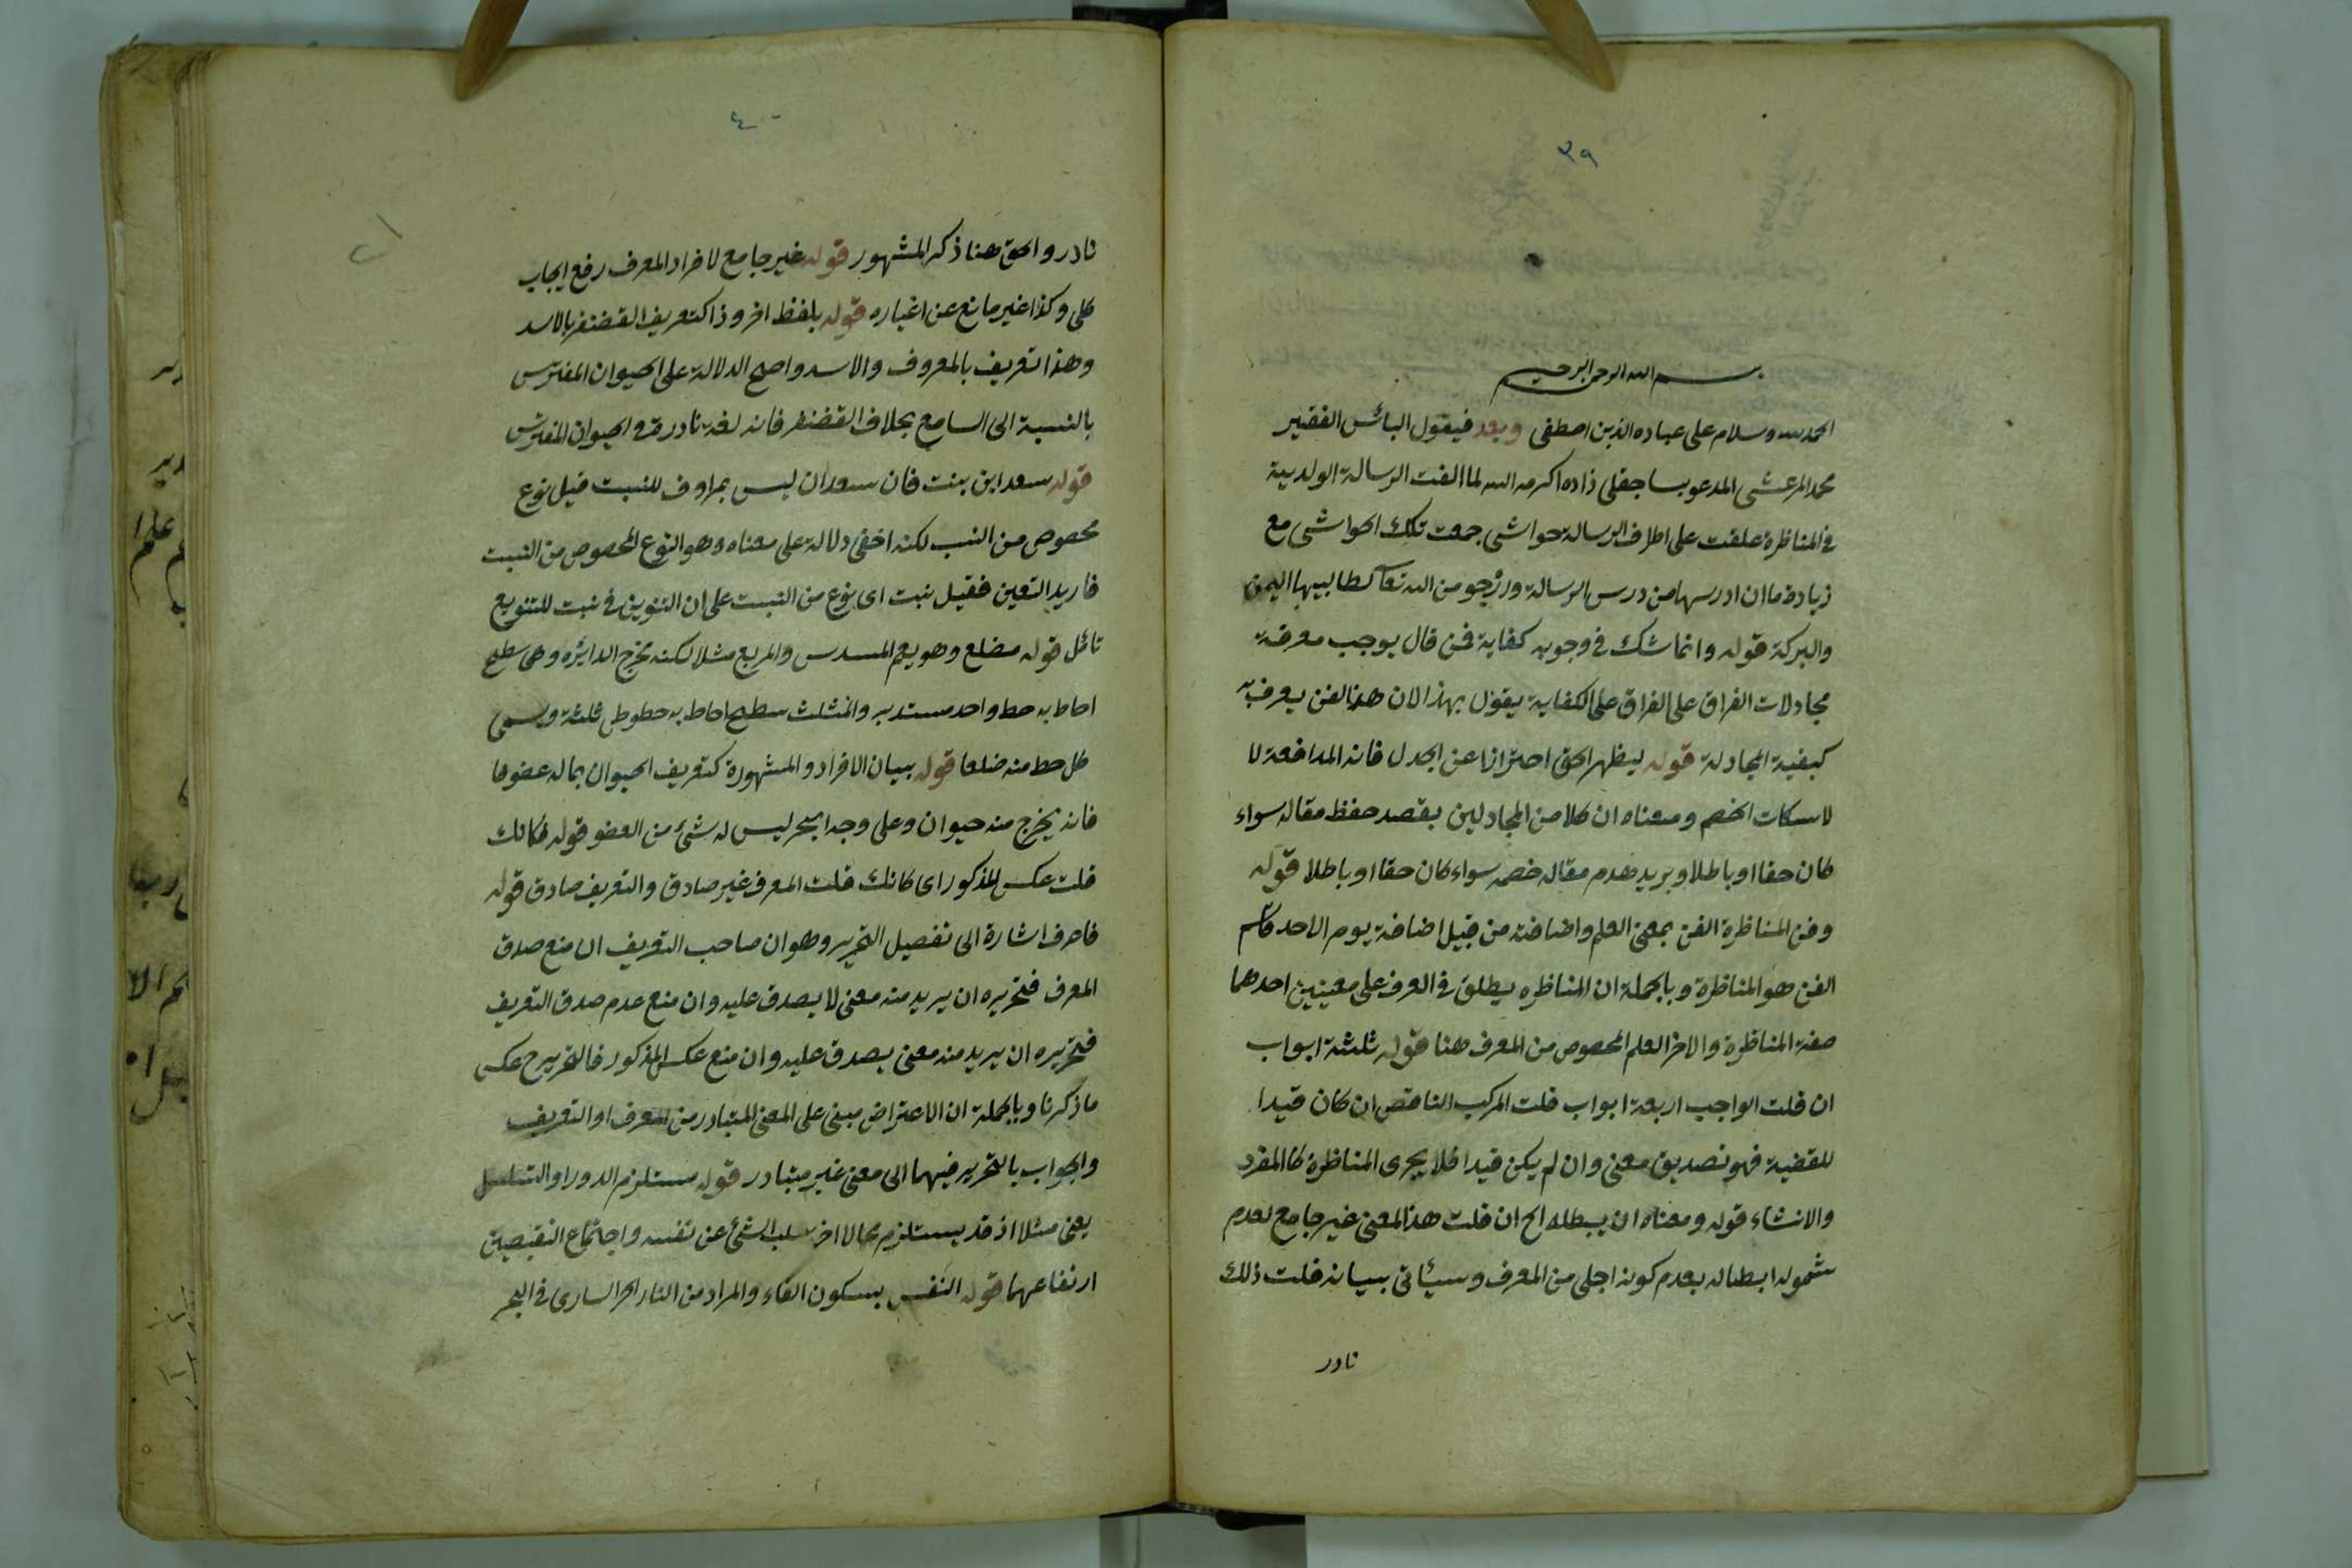 ٣٩
بسم الله الرحمن الرحيم
الحمد لله وسلام على عباده الذين اصطفى وبعد فيقول البائس الفقير
محمد المرعشى المدعو بساجقلى زاده اكرمه الله لما الفت الرسالة الولدية
فى المناظرة علقت على اطراف الرسالة حواشى جمعت تلك الحواشى مع
زيادة ما ان ادرسها من درس الرسالة وارجو من الله تعا لطالبيها اليمن
والبركة قوله وانما شك فى وجوبه كفاية فمن قال يوجب معرفة
مجادلات الفراق على الفراق على الكفاية يقول بهذا لان هذا الفن يعرف به
كيفية المجادلة قوله ليظهر الحق احترازا عن الجدل فانه المدافعة لا
لاسكات الخصم ومعناه ان كلا من المجادلين بقصد حفظ مقاله سواء
كان حقا او باطلا ويريد هدم مقال خصمه سواء كان حقا او باطلا قوله
وفن المناظرة الفن بمعنى العلم واضافته من قبيل اضافة يوم الاحد فاسم
الفن هو المناظرة وبالجملة ان المناظره يطلق فى العرف على معنيين احدهما
صفة المناظرة والاخر العلم المخصوص من المعرف هنا قوله ثلثة ابواب
ان قلت الواجب اربعة ابواب قلت المركب الناقص ان كان قيدا
للقضية فهو تصديق معنى وان لم يكن قيدا فلا يجرى المناظرة كالمفرد
والانشاء قوله ومعناه ان يبطله الح ان قلت هذا المعنى غير جامع لعدم
شموله ابطاله بعدم كونه اجلى من المعرف وسيئاتى بيانه قلت ذلك
نادر
٤٠
نادر والحق هنا ذكر المشهور قوله غير جامع لافراد المعرف رفع ايجاب
كلى وكذا غير مانع عن اغياره قوله بلفظ اخر وذا كتعريف الغضنفر بالاسد
وهذا تعريف بالمعروف والاسد واضح الدلالة على الحيوان المفترس
بالنسبة الى السامع بخلاف الغضنفر فانه لغة نادرة فى الحيوان المفترس
قوله سعدان نبت فان سعدان ليس بمرادف للنبت قيل نوع
مخصوص من النبت لكنه اخفى دلالة على معناه وهو النوع المخصوص من النبت
فاريد التعين فقيل نبت اى نوع من النبت على ان التنوين فى نبت للتنويع
تأمل قوله مضلع وهو يعم المسدس والمربع مثلا لكنه يخرج الدايره وهى سطح
احاط به خط واحد مستدير والمثلث سطح احاط به خطوط ثلثة ويسمى
كل خط منه ضلعا قوله ببيان الافراد والمشهورة كتعريف الحيوان بماله عضو ما
فانه يخرج منه حيوان وعلى وجه البحر ليس له شئ من العضو قوله فكانك
قلت عكس المذكور اى كانك قلت المعرف غير صادق والتعريف صادق قوله
فاعرف اشارة الى تفصيل التحرير وهو ان صاحب التعريف ان منع صدق
المعرف فتحريره ان يريد منه معنى لا يصدق عليه وان منع عدم صدق التعريف
فتحريره ان يريد منه معنى يصدق عليه وان منع عكس المذكور فالتحرير ح عكس
ما ذكرنا وبالجملة ان الاعتراض مبنى على المعنى المتبادر من المعرف او التعريف
والجواب بالتحرير فيهما الى معنى غير متبادر قوله مستلزم الدور او التسلسل
يعنى مثلا اذ قد يستلزم محالا اخر كسلب الشئ عن نفسه واجتماع النقيضين
ارتفاعهما قوله النفس بسكون الفاء والمراد من النار الحر السارى فى